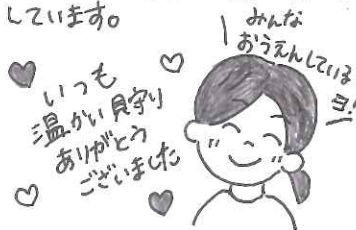 しています。
みんな
おうえんしている
ヨ!
いつも
温かい見守り
ありがとう
ございました